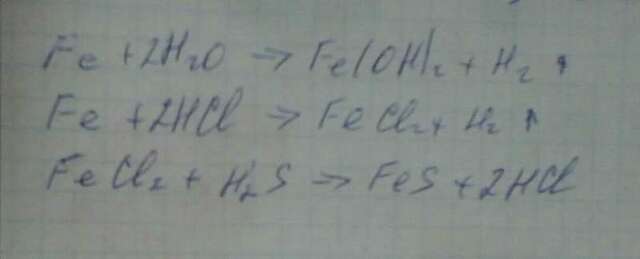 Fe + 2H₂O → Fe(OH)₂ + H₂ ↑
Fe + 2HCl → FeCl₂ + H₂ ↑
FeCl₂ + H₂S → FeS + 2HCl